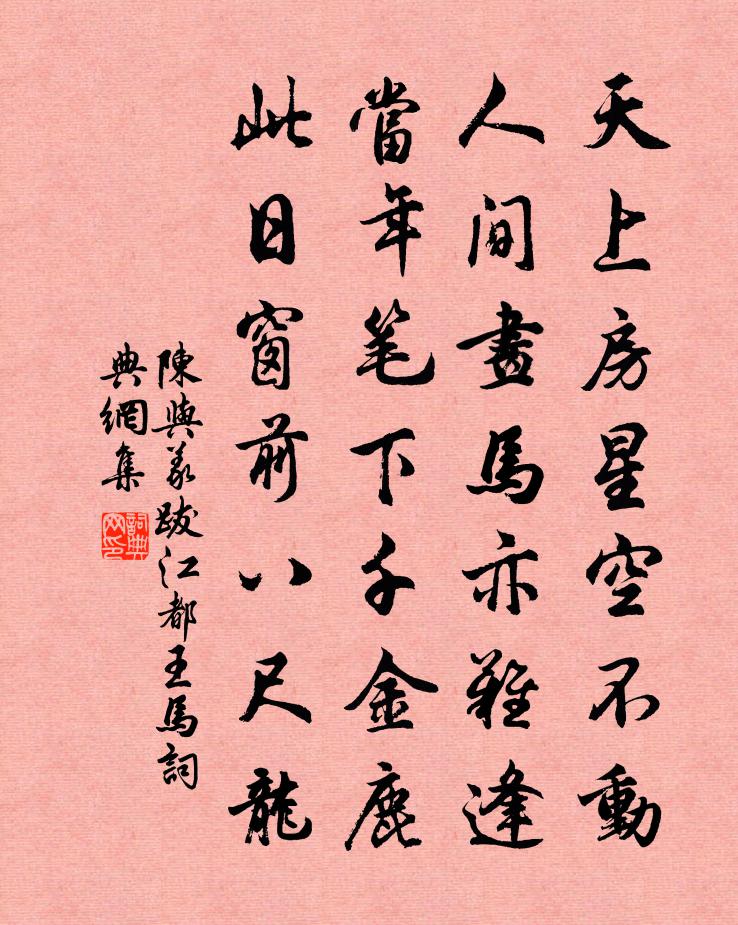 天上房星空不動
人間畫馬亦難逢
當年笔下千金鹿
此日窗前八尺龍
陳與義跋江都王馬詞
典網集
詞典網印